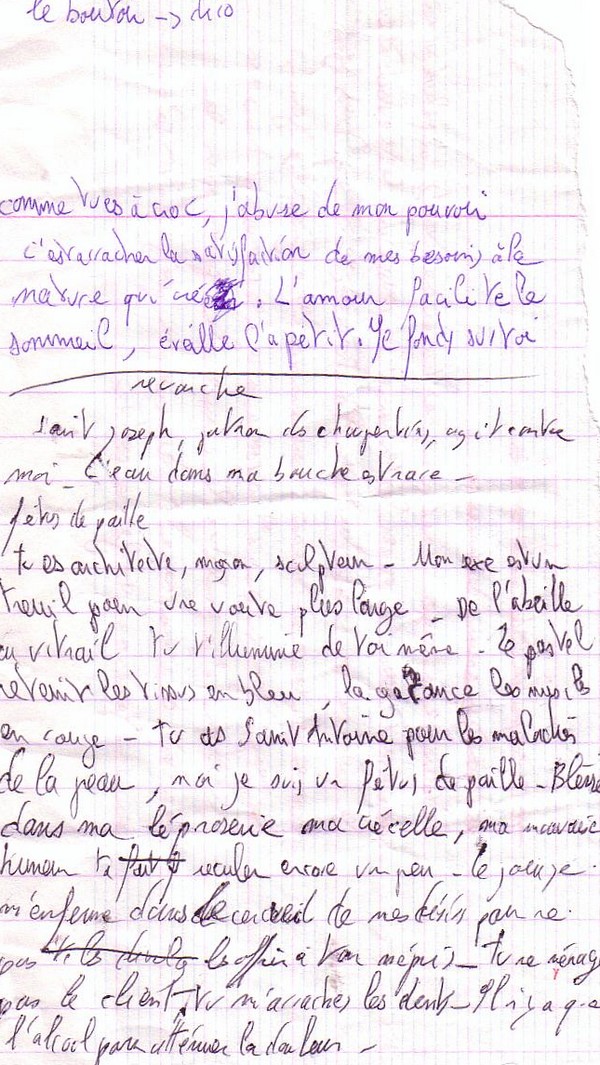 le bouton -> d
comme tu es à croc, j'abuse de mon pouvoir
c'est arracher la satisfaction de mes besoins à la
nature qui crée . L'amour facilite le
sommeil, éveille l'apétit. Je fonds sur toi
revanche
saint joseph, patron des charpentiers, agit contre
moi - L'eau dans ma bouche est rare -
fétus de paille
tu es architecte, maçon, sculpteur - Mon sexe est un
treuil pour une voute plus large - De l'abeille
au vitrail tu t'illumine de toi même - Le pastel
retenit les tissus en bleu, la garance les
en rouge - tu es Saint Antoine pour les maladies
de la peau, moi je suis un fétus de paille - Blessé
dans ma léproserie ma crécelle, ma mauvaise
humeur te fait reculer encore un peu - Je
m'enferme dans le cercueil de mes désirs pour ne
pas les offrir à ton mépris - tu ne ménage
pas le client, tu m'arraches les dents - Il n'y a que
l'alcool pour atténuer la douleur -